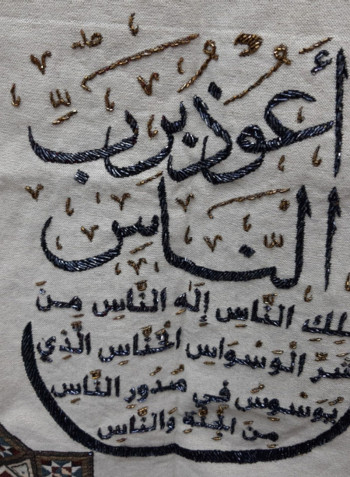 أَعُوذُ بِرَبِّ
النَّاسِ
مَلِكِ النَّاسِ إِلَهِ النَّاسِ مِنْ
شَرِّ الْوَسْوَاسِ الْخَنَّاسِ الَّذِي
يُوَسْوِسُ فِي صُدُورِ النَّاسِ
مِنَ الْجِنَّةِ وَالنَّاسِ